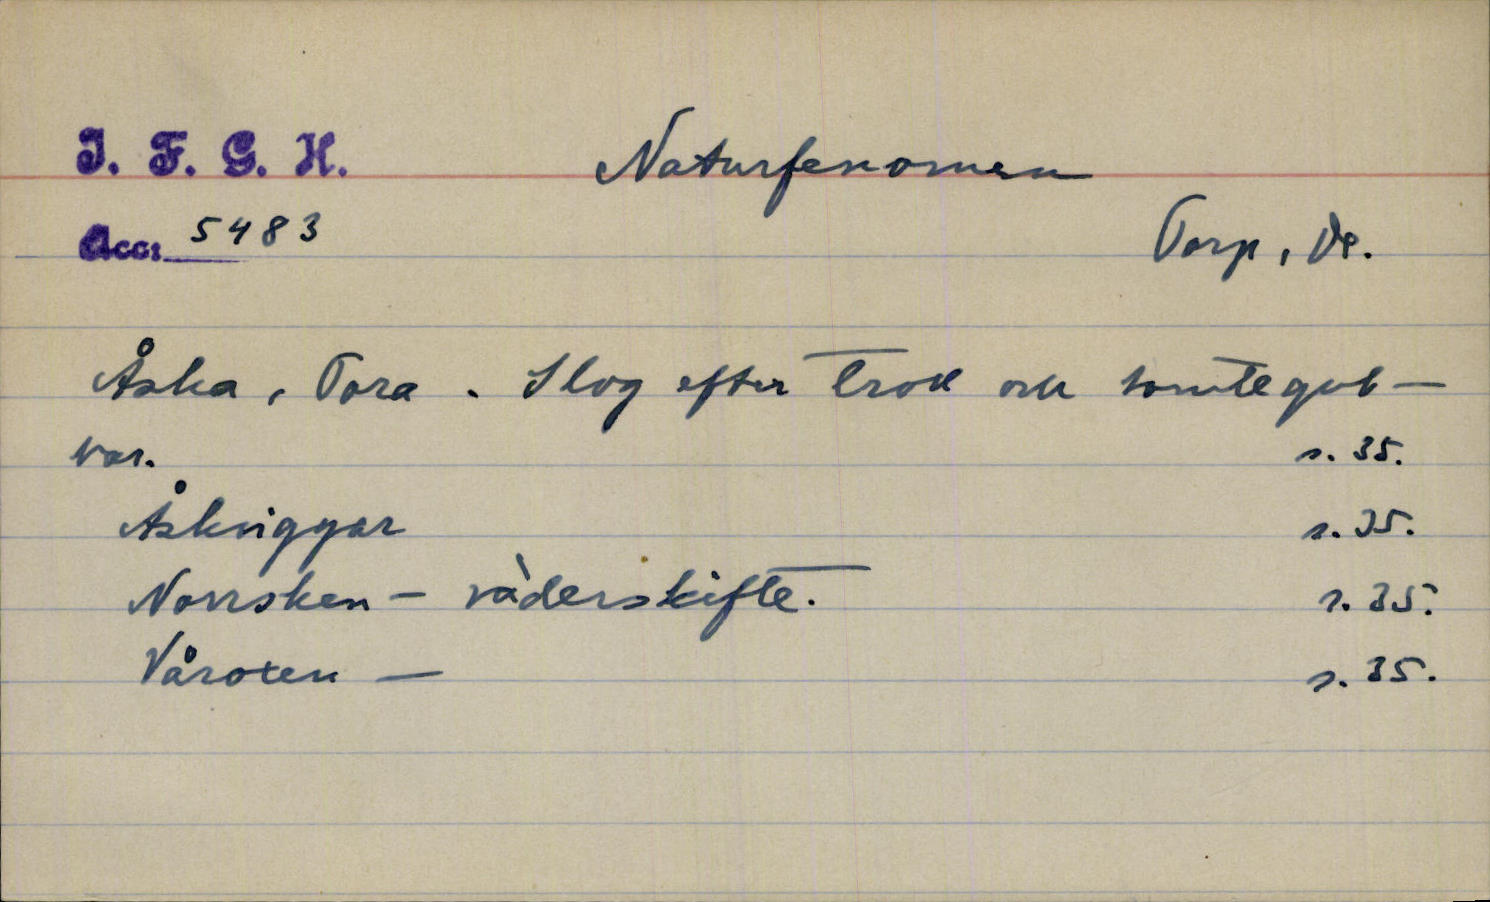 I. F. G. H.
Naturfenomen
Acc: 5483
Torp, Ds.
Åska, Tora. Slog efter troll och tomtegub-
bar. s. 35.
Åskviggar s. 35.
Norrsken - väderskifte. s. 35.
Våroxen - s. 35.